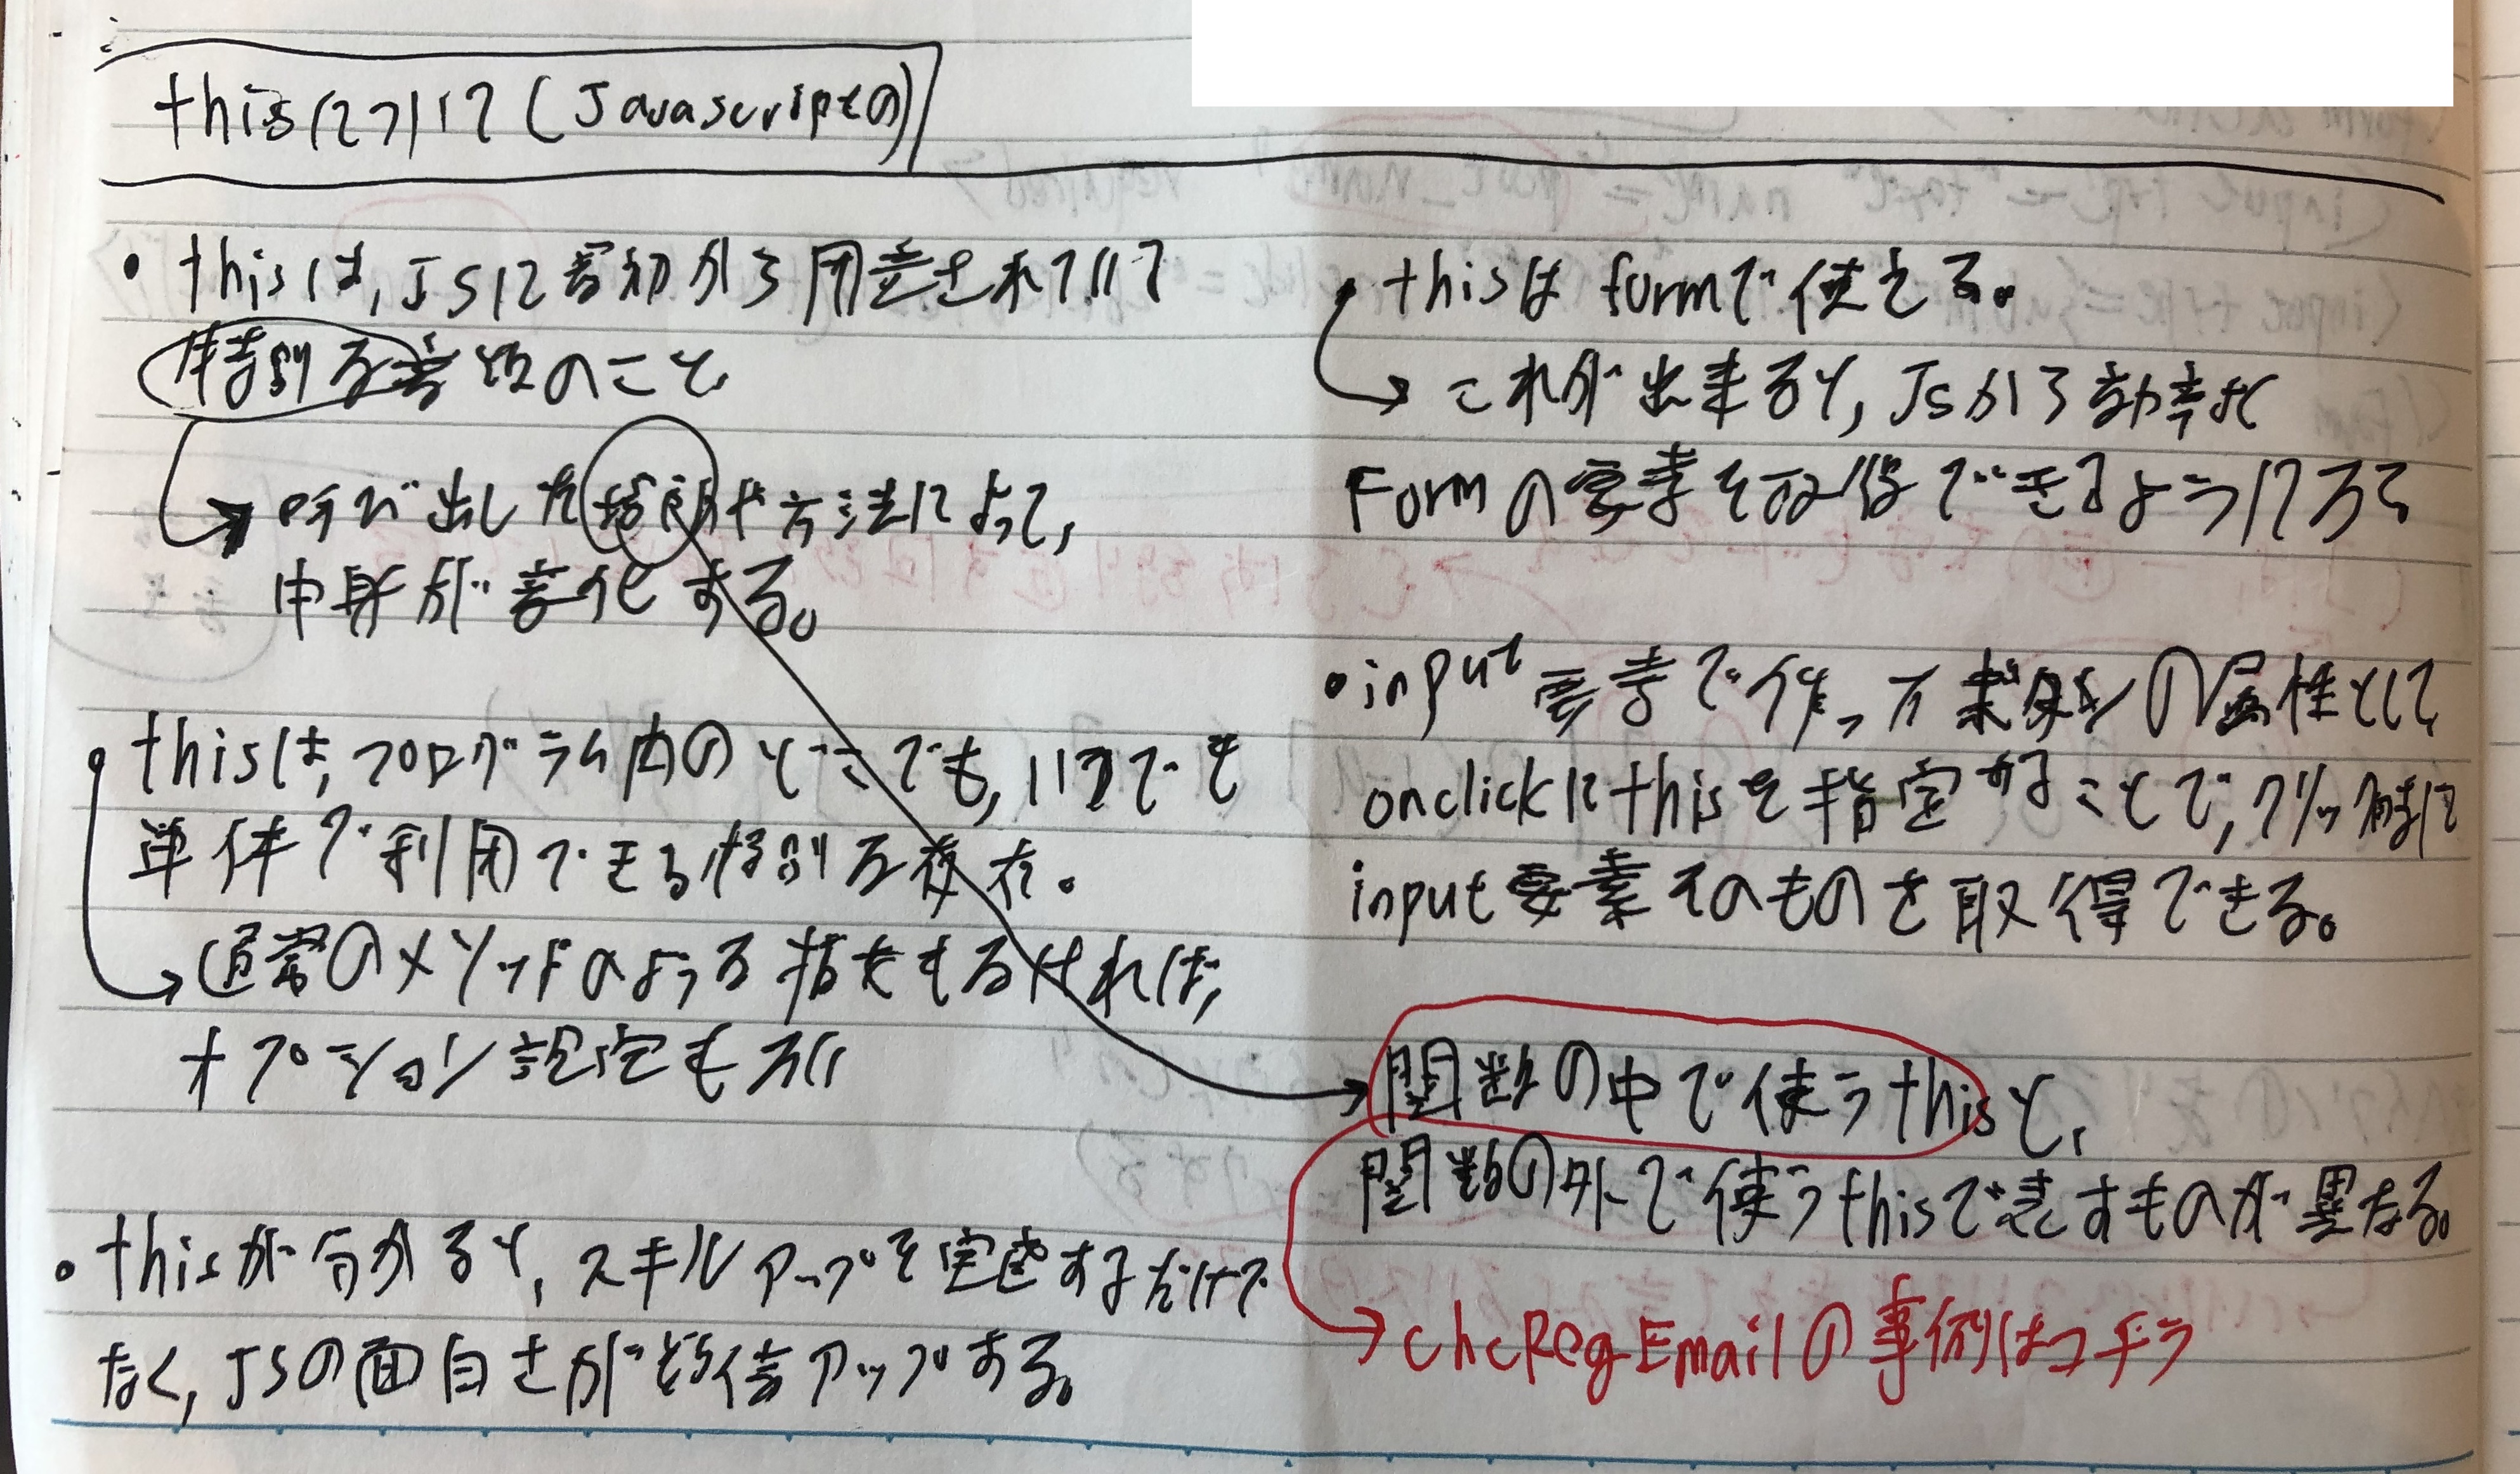 thisについて(Javascriptの)
・thisは,JSに最初から用意されていて
特別な変数のこと
→呼び出した場所や方法によって,
中身が変化する。
・thisは,プログラム内のどこでも,いつでも
単体で利用できる特別な存在。
→通常のメソッドのような指定もなければ,
オプション設定もない
・thisが分かると,スキルアップを実感するだけで
なく,JSの面白さが数倍アップする。
・thisはformで使える。
→これが出来ると,JSから効率よく
Formの要素を取得できるようになる
・input要素で作ったボタンの属性として
onclickにthisを指定することで,クリック時に
input要素そのものを取得できる。
→関数の中で使うthisと,
関数の外で使うthisで表すものが異なる。
→chcRegEmailの事例はコチラ